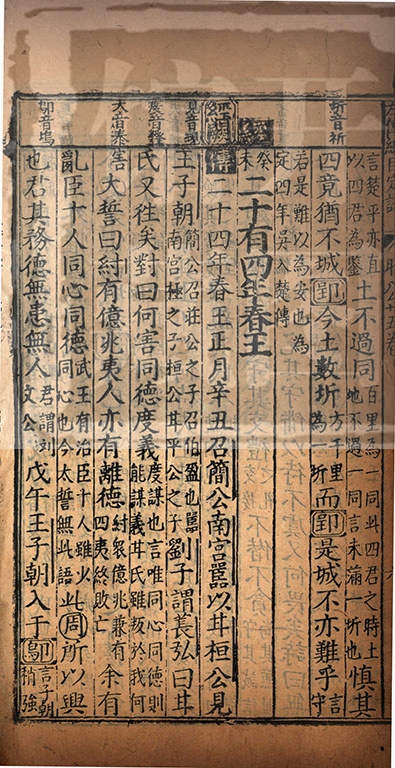 圻音祈
言楚平亦直
以四君為鑒
土不過同
百里為一同此四君之時土
地不過一同言未滿一圻也
慎其
四竟猶不城郢今土數圻
方千里
為一圻
而郢是城不亦難乎
言
守
若是難以為安也為
定四年吳入楚傳
癸未
經
二十有四年春王
經闕
傳
二十四年春王正月辛丑召簡公南宮嚚以甘桓公見
見音現
王子朝
簡公召莊公之子召伯盈也嚚
南宮極之子桓公甘平公之子
劉子謂萇弘曰甘
度音鐸
氏又往矣對曰何害同德度義
度謀也言唯同心同德則
能謀義甘氏雖叛於我何
大音泰
害大誓曰紂有億兆夷人亦有離德
紂眾億兆兼有
四夷終敗亡
余有
亂臣十人同心同德
武王有治臣十人雖少
同心也今太誓無此語
此周所以興
鄔音塢
也君其務德無患無人
君謂劉
文公
戊午王子朝入于鄔
言子朝
稍強